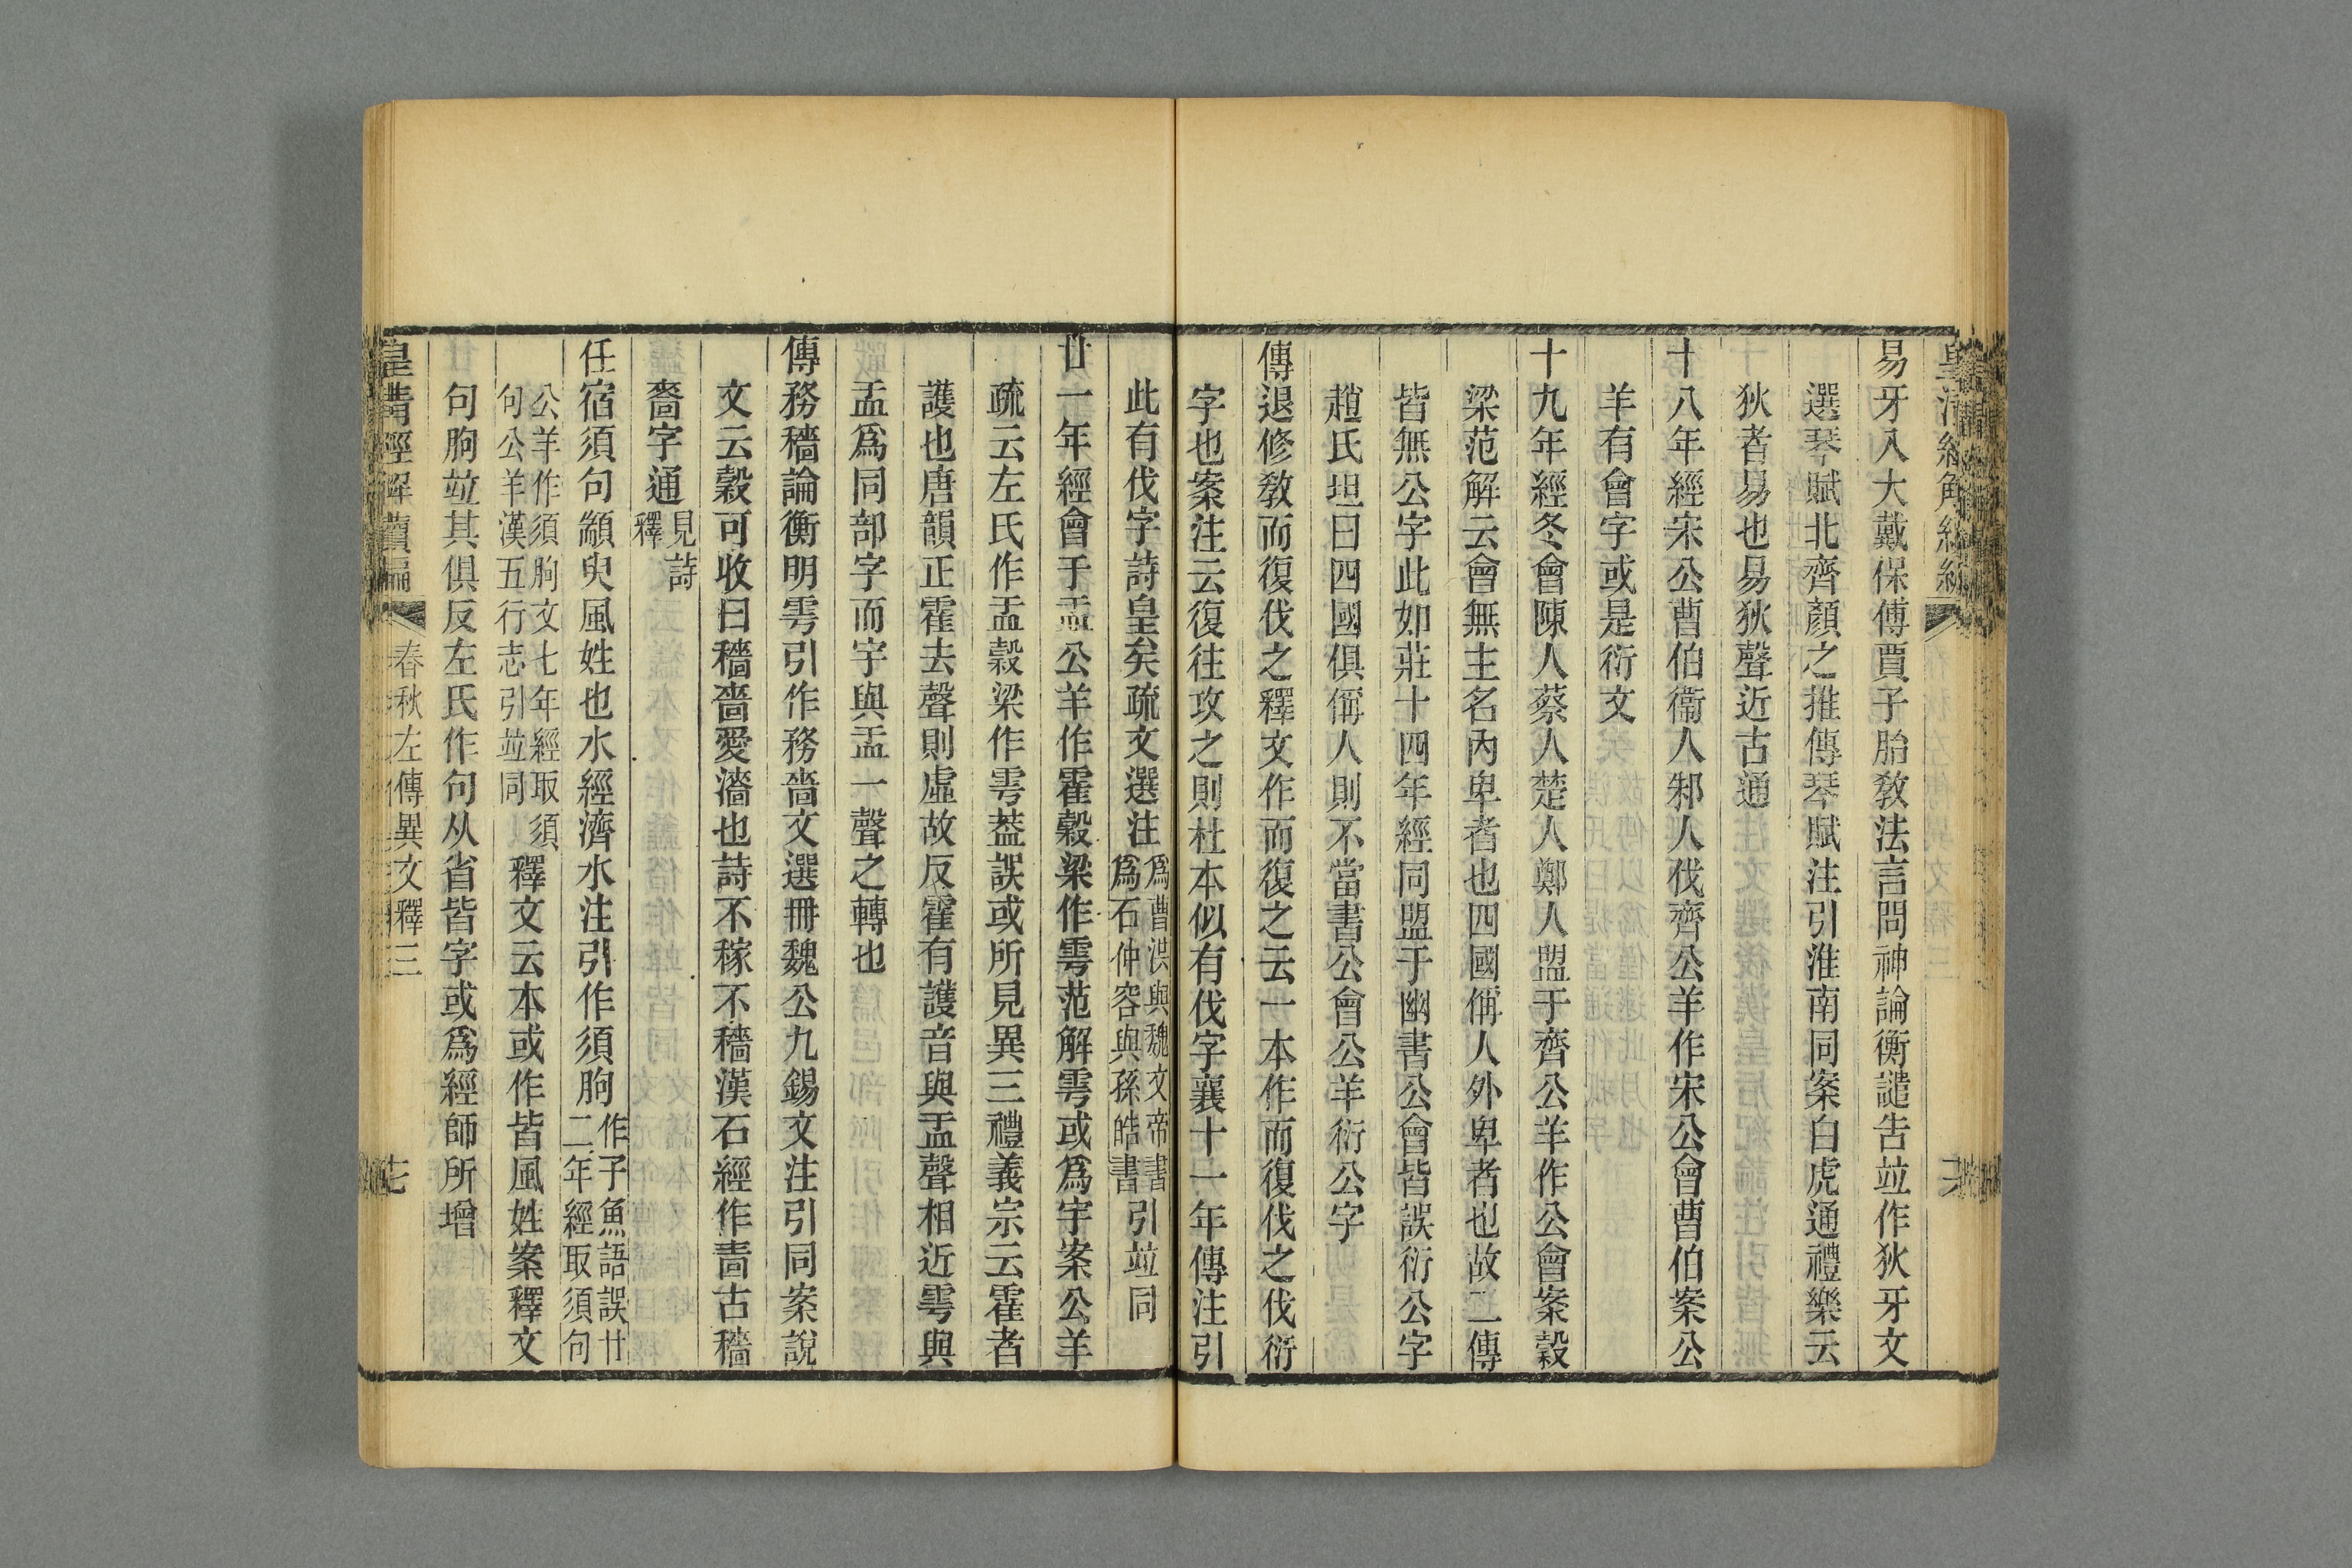 易牙入大戴保傅賈子胎敎法言問神論衡譴告竝作狄牙文
選琴賦北齊顏之推傳琴賦注引淮南同案白虎通禮樂云
狄者易也易狄聲近古通
十八年經宋公曹伯衞人邾人伐齊公羊作宋公會曹伯案公
羊有會字或是衍文
十九年經冬會陳人蔡人楚人鄭人盟于齊公羊作公會案穀
梁范解云會無主名內卑者也四國偁人外卑者也故二傳
皆無公字此如莊十四年經同盟于幽書公會皆誤衍公字
趙氏坦曰四國俱偁人則不當書公會公羊衍公字
傳退修敎而復伐之釋文作而復之云一本作而復伐之伐衍
字也案注云復往攻之則杜本似有伐字襄十一年傳注引
此有伐字詩皇矣疏文選注爲曹洪與魏文帝書爲石仲容與孫皓書引竝同
廿一年經會于盂公羊作霍穀梁作雩范解雩或爲宇案公羊
疏云左氏作盂穀梁作雩葢誤或所見異三禮義宗云霍者
護也唐韻正霍去聲則虛故反霍有護音與盂聲相近雩與
盂爲同部字而宇與盂一聲之轉也
傳務穡論衡明雩引作務嗇文選冊魏公九錫文注引同案說
文云穀可收曰穡嗇愛濇也詩不稼不穡漢石經作嗇古穡
嗇字通見詩釋
任宿須句顓臾風姓也水經濟水注引作須朐作子魚語誤廿二年經取須句
公羊作須朐文七年經取須句公羊漢五行志引竝同釋文云本或作皆風姓案釋文
句朐竝其俱反左氏作句从省皆字或爲經師所增
皇淸經解續編
春秋左傳異文釋三
七